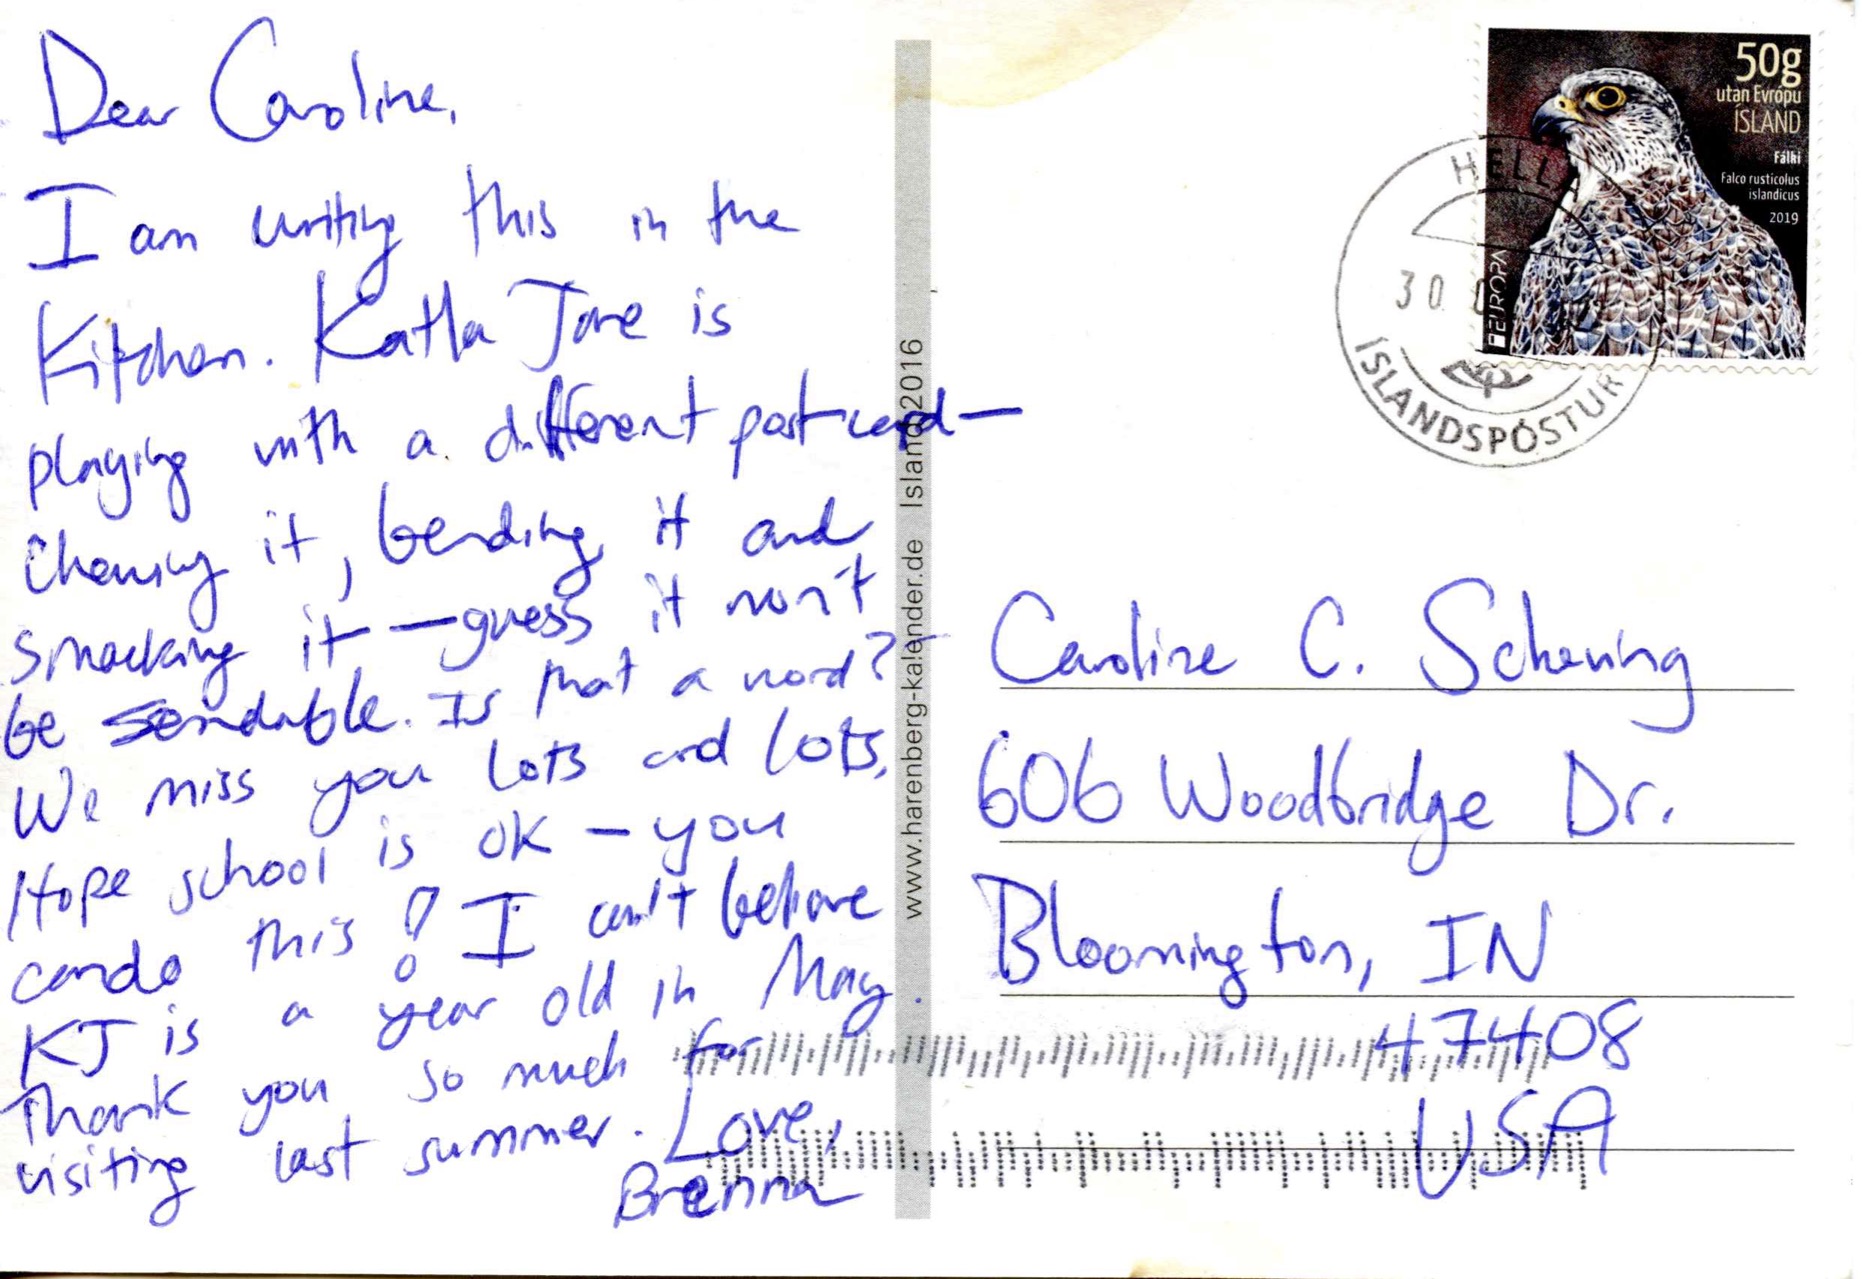 Dear Caroline,
I am writing this in the
Kitchen. Katla Jane is
playing with a different postcard—
chewing it, bending it and
smacking it—guess it won't
be sendable. Is that a word?
We miss you lots and lots.
Hope school is ok – you
can do this! I can't believe
KJ is a year old in May.
Thank you so much for
visiting last summer. Love,
Brenna
www.harenberg-kalender.de Island 2016
50g
utan Evrópu
ÍSLAND
Fálki
Falco rusticolus
islandicus
2019
EUROPA
HELLA
30
ÍSLANDSPÓSTUR
Caroline C. Schening
606 Woodbridge Dr.
Bloomington, IN
47408
USA